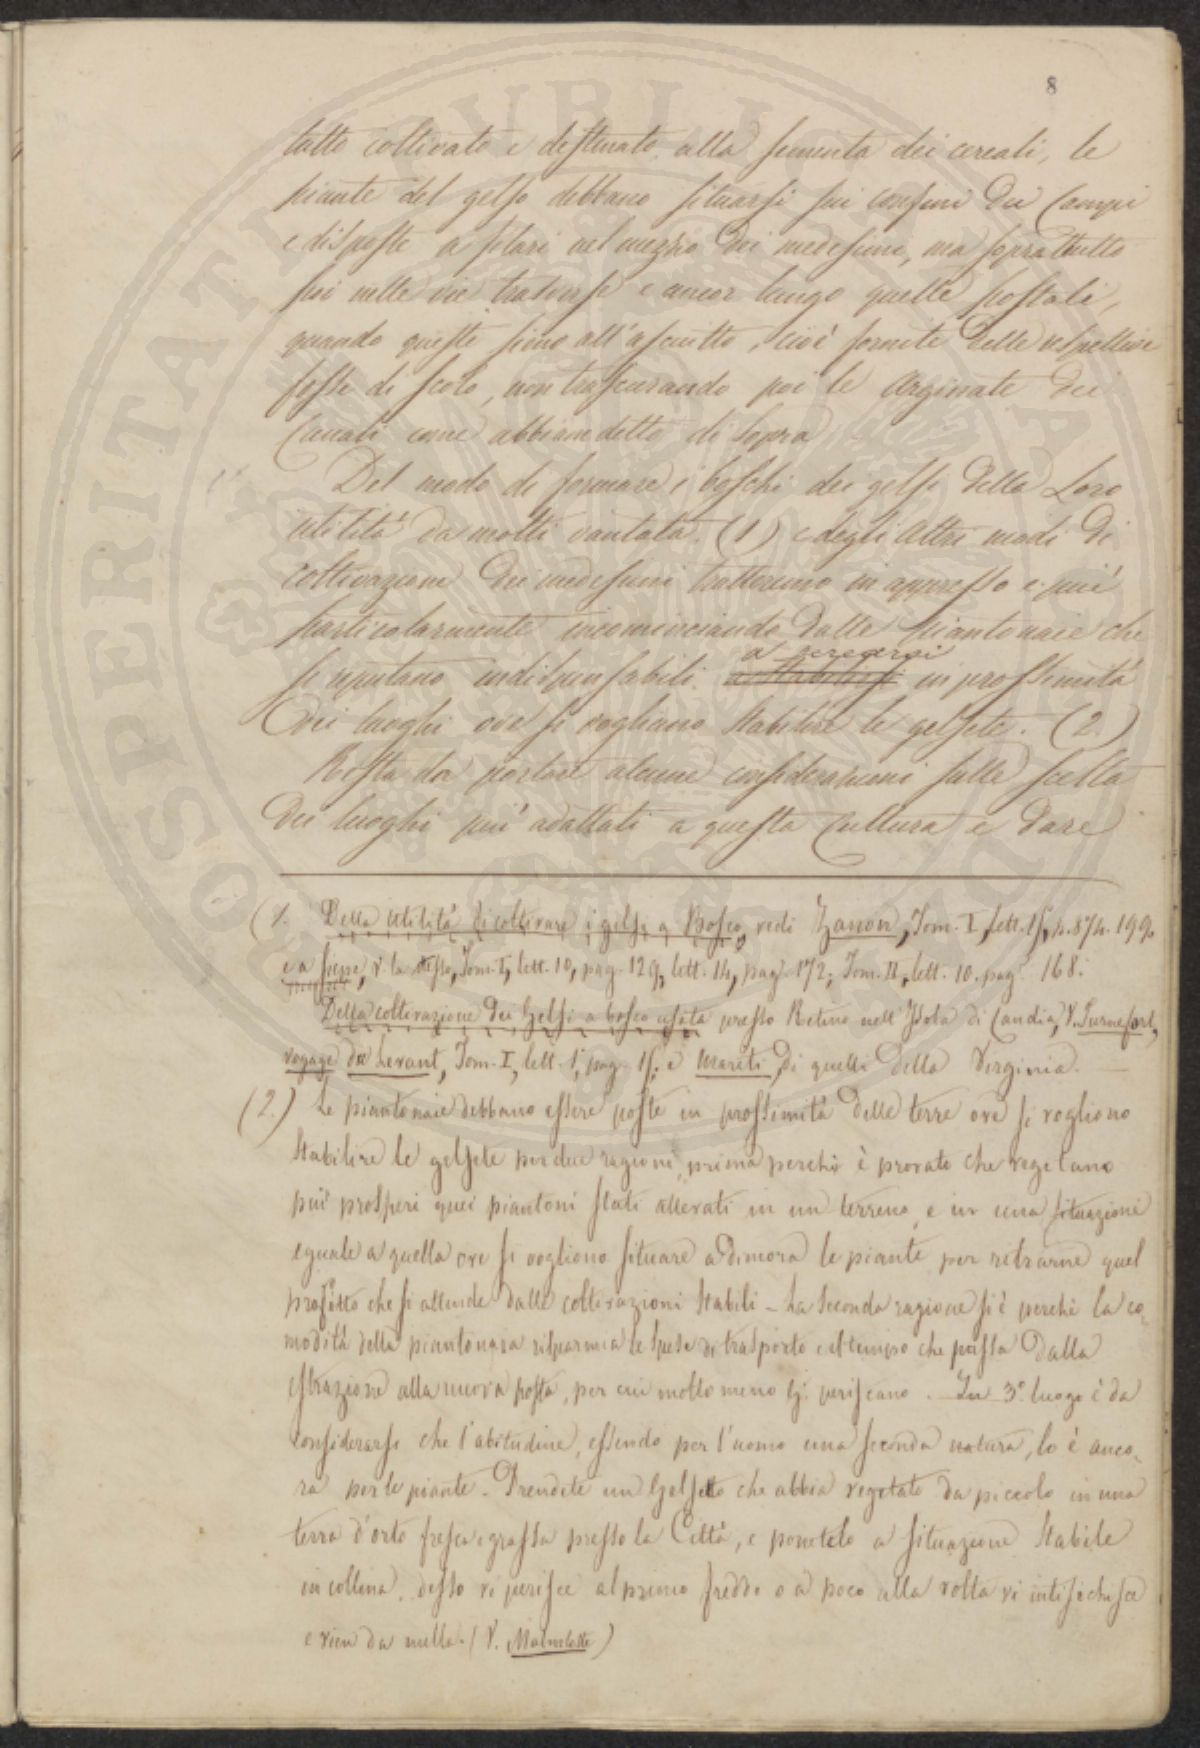 8
tutto coltivato e destinato alla sementa dei cereali, le
piante del gelso debbano situarsi sui confini dei Campi
e disposte a filari nel mezzo dei medesimi, ma soprattutto
poi nelle vie traverse e ancor lungo quelle postali,
quando queste sieno all'asciutto, cioè fornite delle respettive
fosse di scolo, non trascurando poi le Arginate dei
Canali come abbiam detto di sopra
Del modo di formare i boschi dei gelsi della Loro
utilità da molti vantata. (1) e degli altri modi di
coltivazione dei medesimi tratteremo in appresso e più
particolarmente incominciando dalle piantonaie che
a
si reputano indispensabili a stabilirsi in prossimità
dei luoghi ove si vogliano stabilire le gelsete. (2.)
Resta da portare alcune considerazioni sulle scelta
dei luoghi più adattati a questa Cultura e dare
(1. Della utilità di coltivare i gelsi a Bosco, vedi Zanon, Tom. I, lett.
e a siepe, V. lo stesso, Tom. I, lett. 10, pag. 129, lett. 14, pag. 172; Tom. II, lett. 10. pag. 168.
Della coltivazione dei Gelsi a bosco usata presso Retino nell'Isola di Candia, V. Turnefort,
voyage du Levant, Tom. I, lett. 1, pag. e Mariti, di quelli della Virginia.
(2.) Le piantonaie debbano essere poste in prossimità delle terre ove si vogliono
stabilire le gelsete per due ragioni, prima perchè è provato che vegetano
più prosperi quei piantoni stati allevati in un terreno, e in una situazione
eguale a quella ove si vogliono situare a dimora le piante per ritrarne quel
profitto che si attende dalle coltivazioni stabili - La seconda ragione si è perchè la co-
modità della piantonaia risparmia le spese di trasporto e il tempo che passa dalla
estrazione alla nuova posta, per cui molto meno periscano. In 3.° luogo è da
considerarsi che l'abitudine, essendo per l'uomo una seconda natura, lo è anco-
ra per le piante. Prendete un Gelsetto che abbia vegetato da piccolo in una
terra d'orto fresca e grassa presso la Città, e ponetelo a situazione stabile
in collina, desso vi perisce al primo freddo o a poco alla volta vi intisichisce
e vien da nulla. (V.